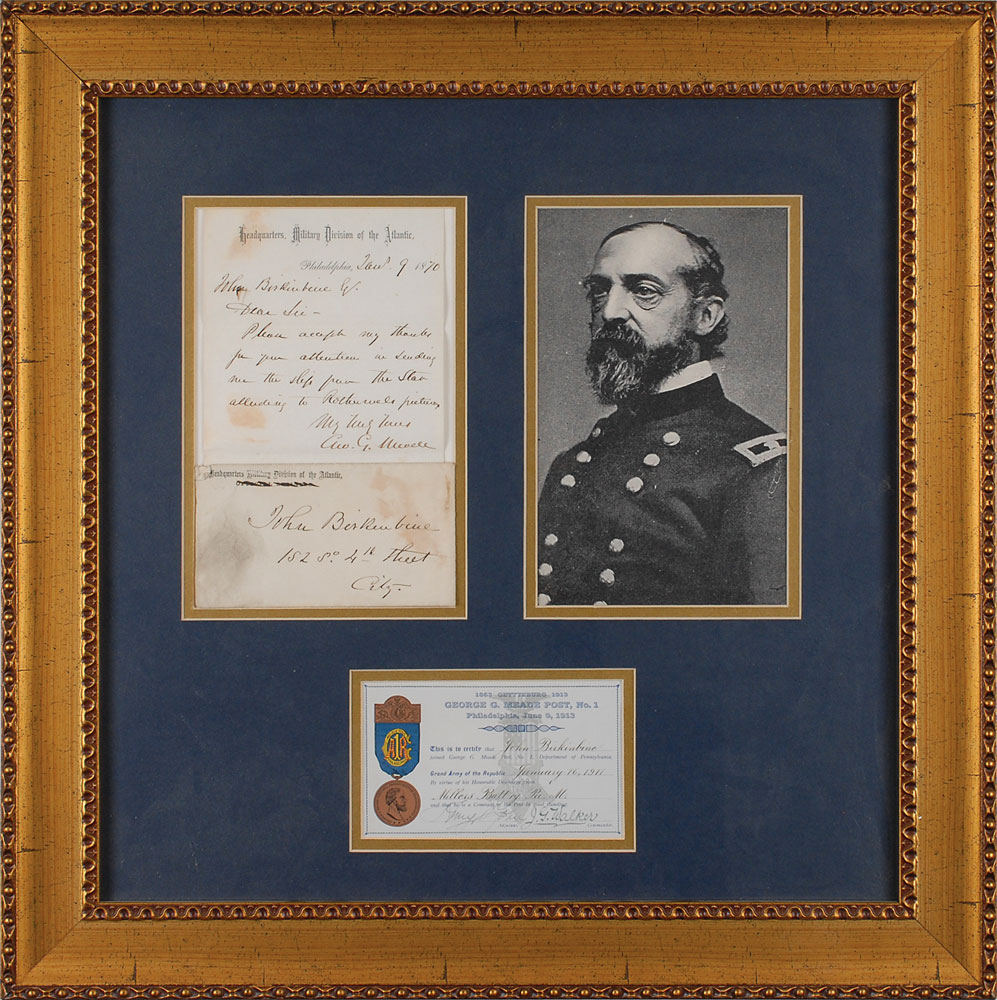 Headquarters, Military Division of the Atlantic,
Philadelphia, Jany. 9 1870
John Birkenbine
Dear Sir -
Please accept my thanks
for your attention in sending
me the slip from the Star
alluding to Rothermels picture
Very Truly Yours
Geo. G. Meade
Headquarters Military Division of the Atlantic,
John Birkenbine
152 So. 4th Street
City.
1863 GETTYSBURG 1913
GEORGE G. MEADE POST, No. 1
Philadelphia, June 9, 1913
This is to certify that John Birkenbine
joined George G. Meade Post No. 1, Department of Pennsylvania
Grand Army of the Republic January 16, 1911
By virtue of his Honorable Discharge from
Millers Battery Pa. M.
and that he is a Comrade of the Post in Good Standing.
J. G. Walker